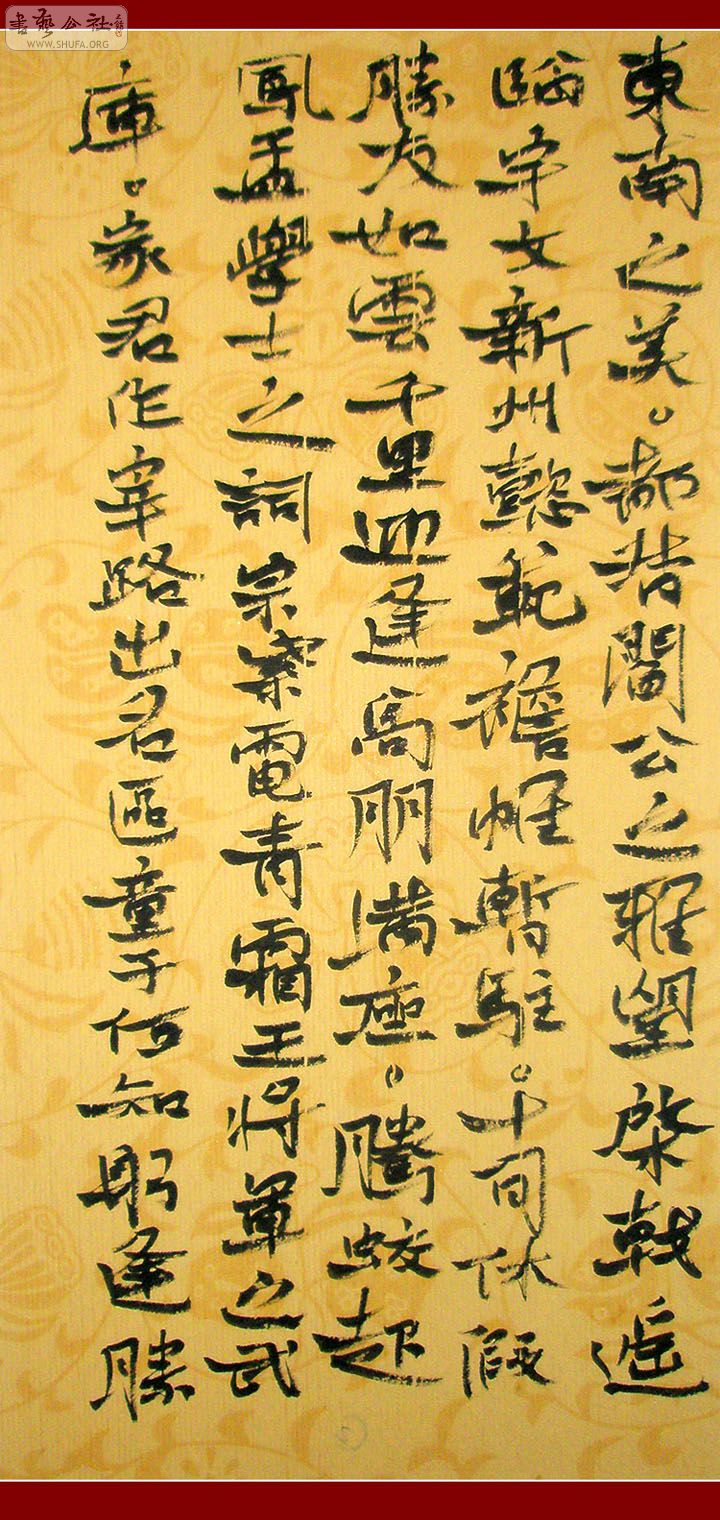 書藝公社
WWW.SHUFA.ORG
東南之美。都督閻公之雅望棨戟遥
臨宇文新州懿範襜帷暫駐。十旬休假
勝友如雲千里迎逢高朋満座。騰蛟起
鳳孟學士之詞宗紫電青霜王将軍之武
庫。家君作宰路出名區童子何知躬逢勝